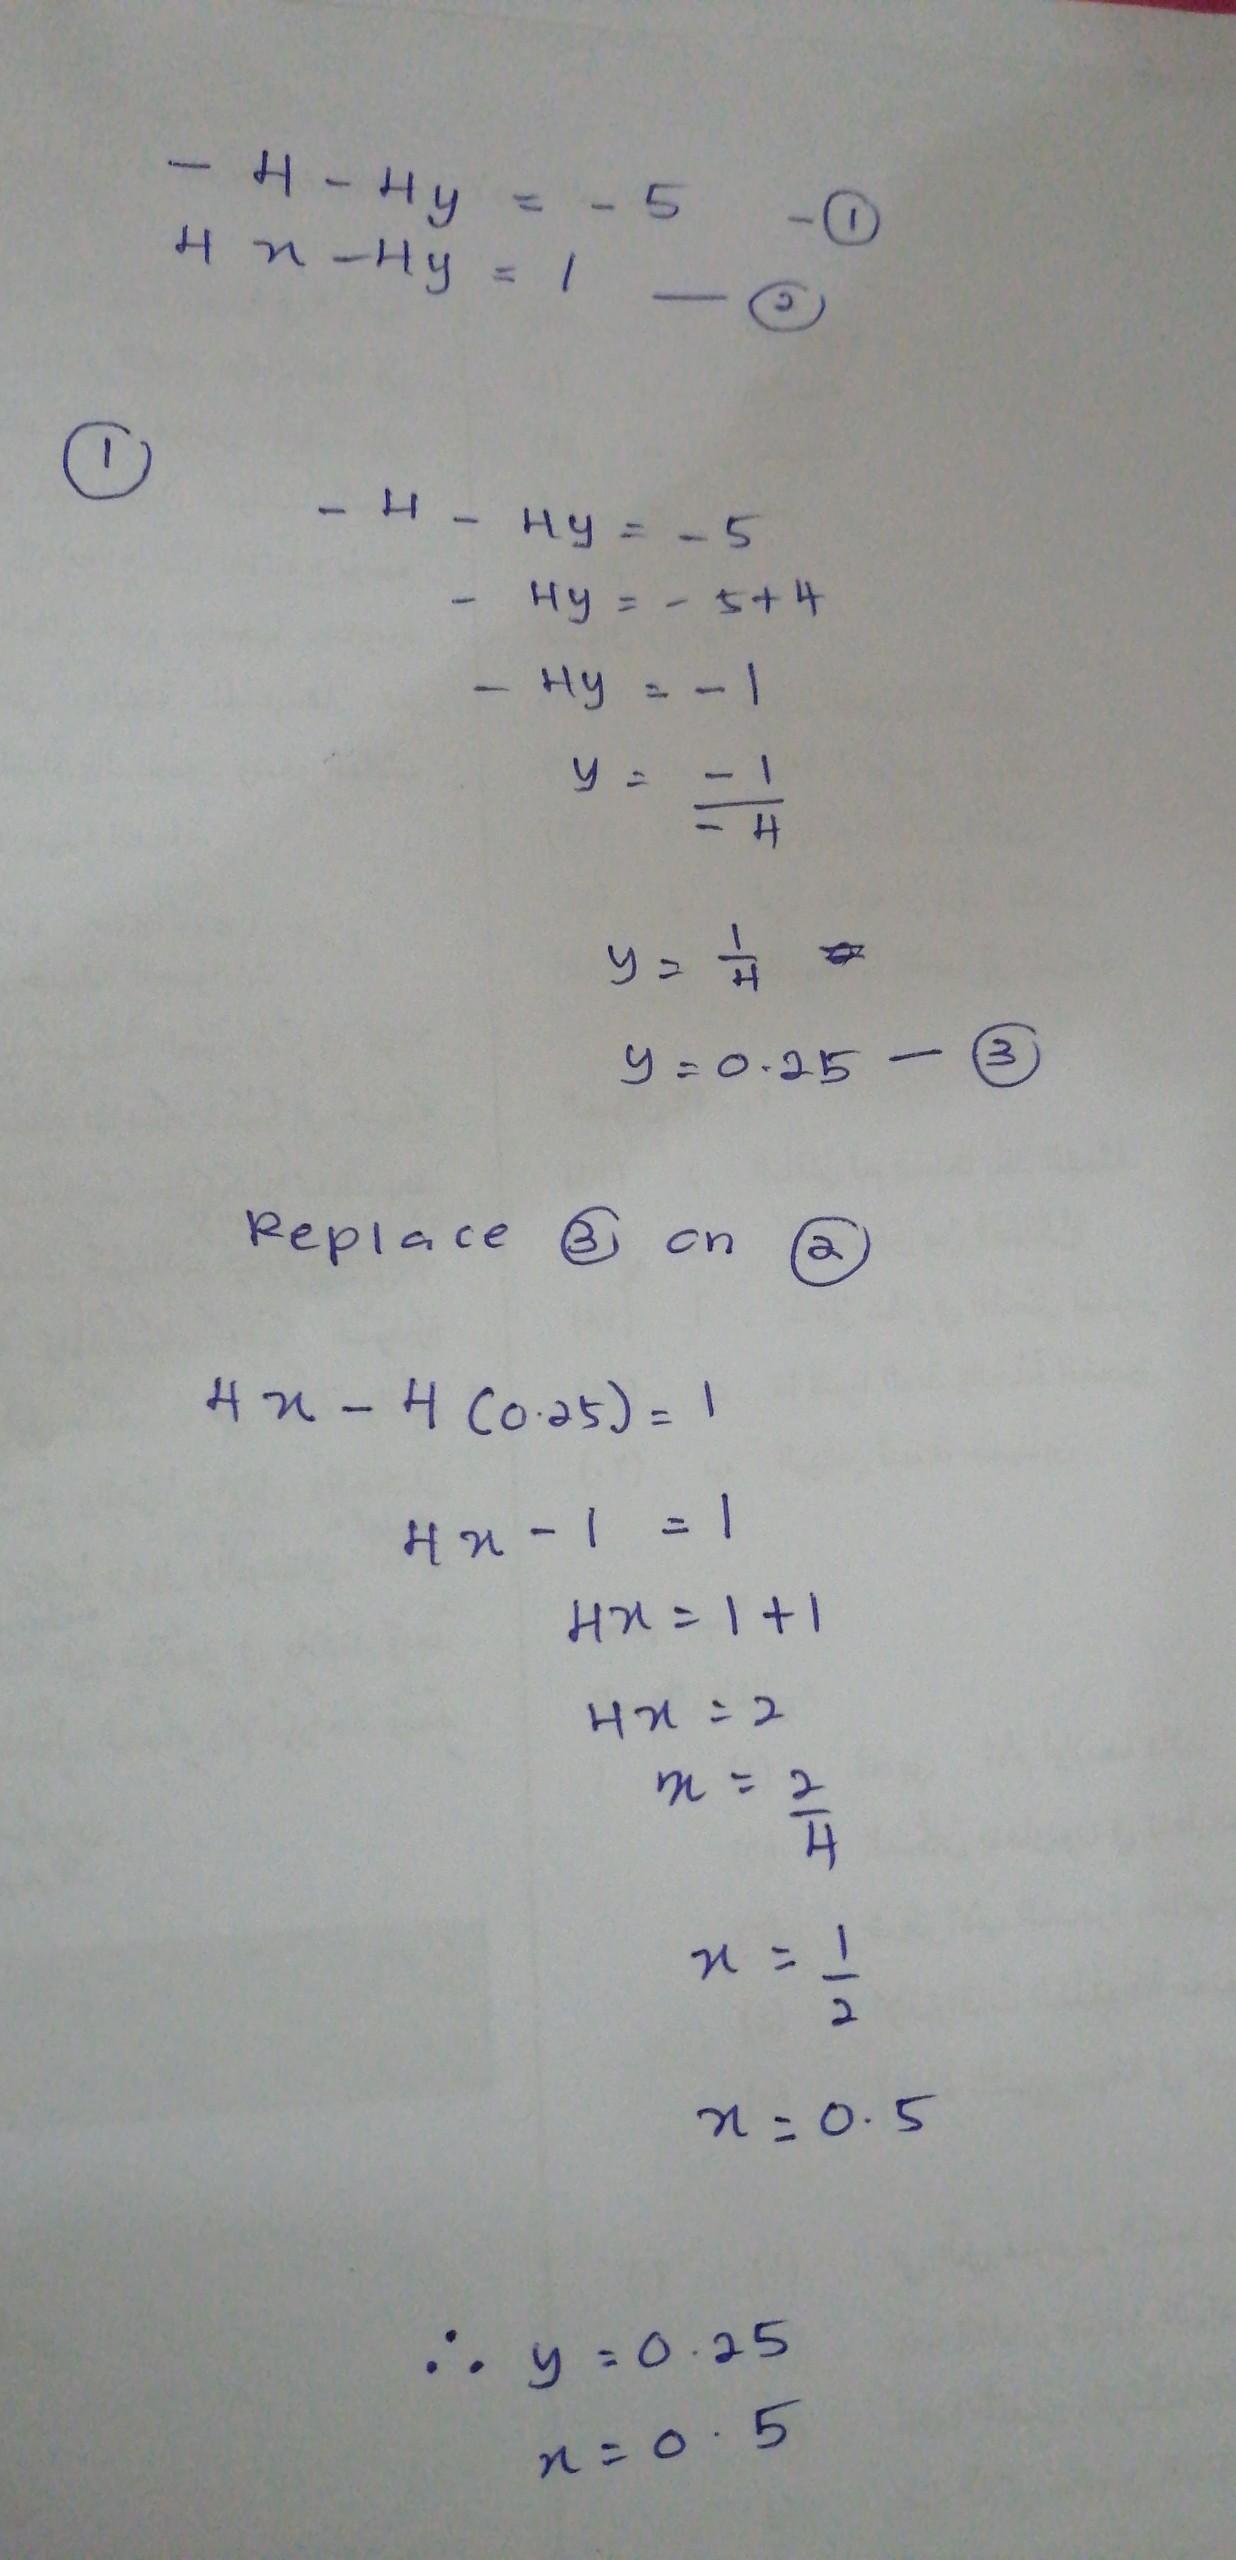 - 4 - 4y = - 5 - ①
4 x - 4y = 1 — ②
①
- 4 - 4y = - 5
- 4y = - 5 + 4
- 4y = - 1
y = - 1
- 4
y = 1/4
y = 0.25 — ③
Replace ③ on ②
4 x - 4 (0.25) = 1
4 x - 1 = 1
4x = 1 + 1
4x = 2
x = 2/4
x = 1/2
x = 0.5
∴ y = 0.25
x = 0.5